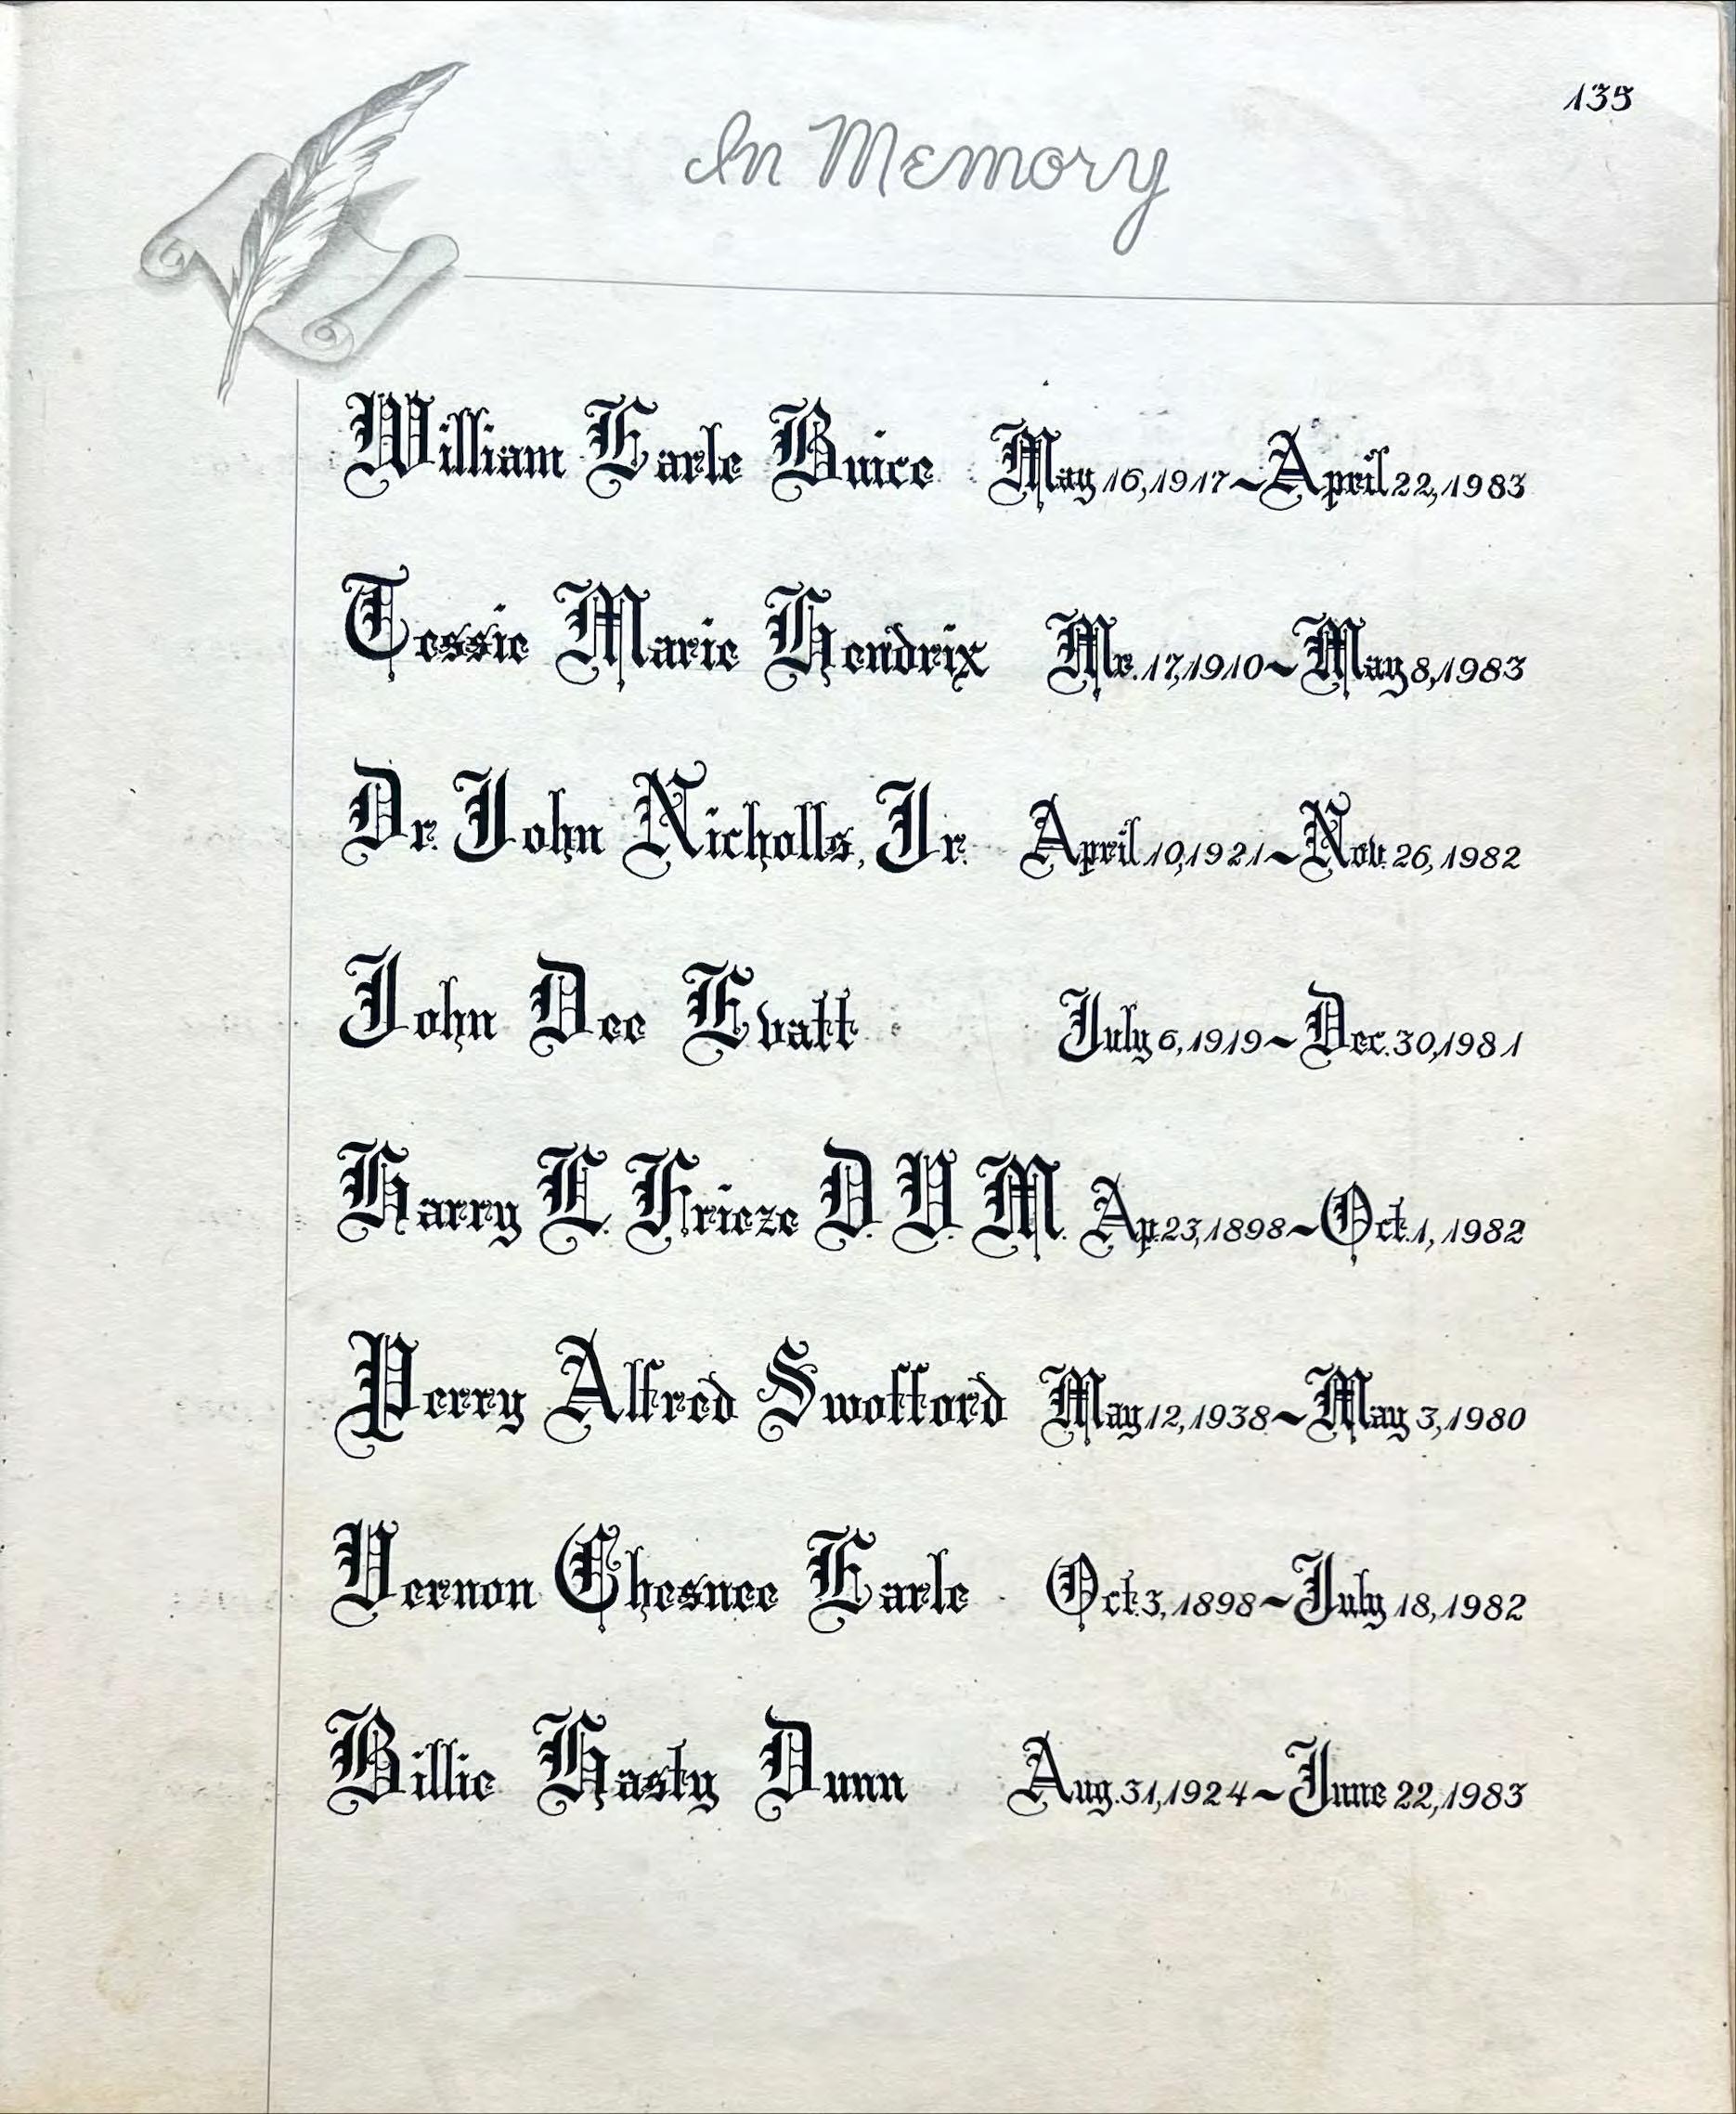 135
In Memory
William Earle Buice May 16, 1917~April 22, 1983
Tessie Marie Hendrix Mr. 17, 1910~May 8, 1983
Dr. John Nicholls, Jr. April 10, 1921~Nov. 26, 1982
John Dee Evatt July 6, 1919~Dec. 30, 1981
Harry L. Frieze D. V. M. Ap. 23, 1898~Oct. 1, 1982
Perry Alfred Swofford May 12, 1938~May 3, 1980
Vernon Chesnee Earle Oct. 3, 1898~July 18, 1982
Billie Hasty Dunn Aug. 31, 1924~June 22, 1983